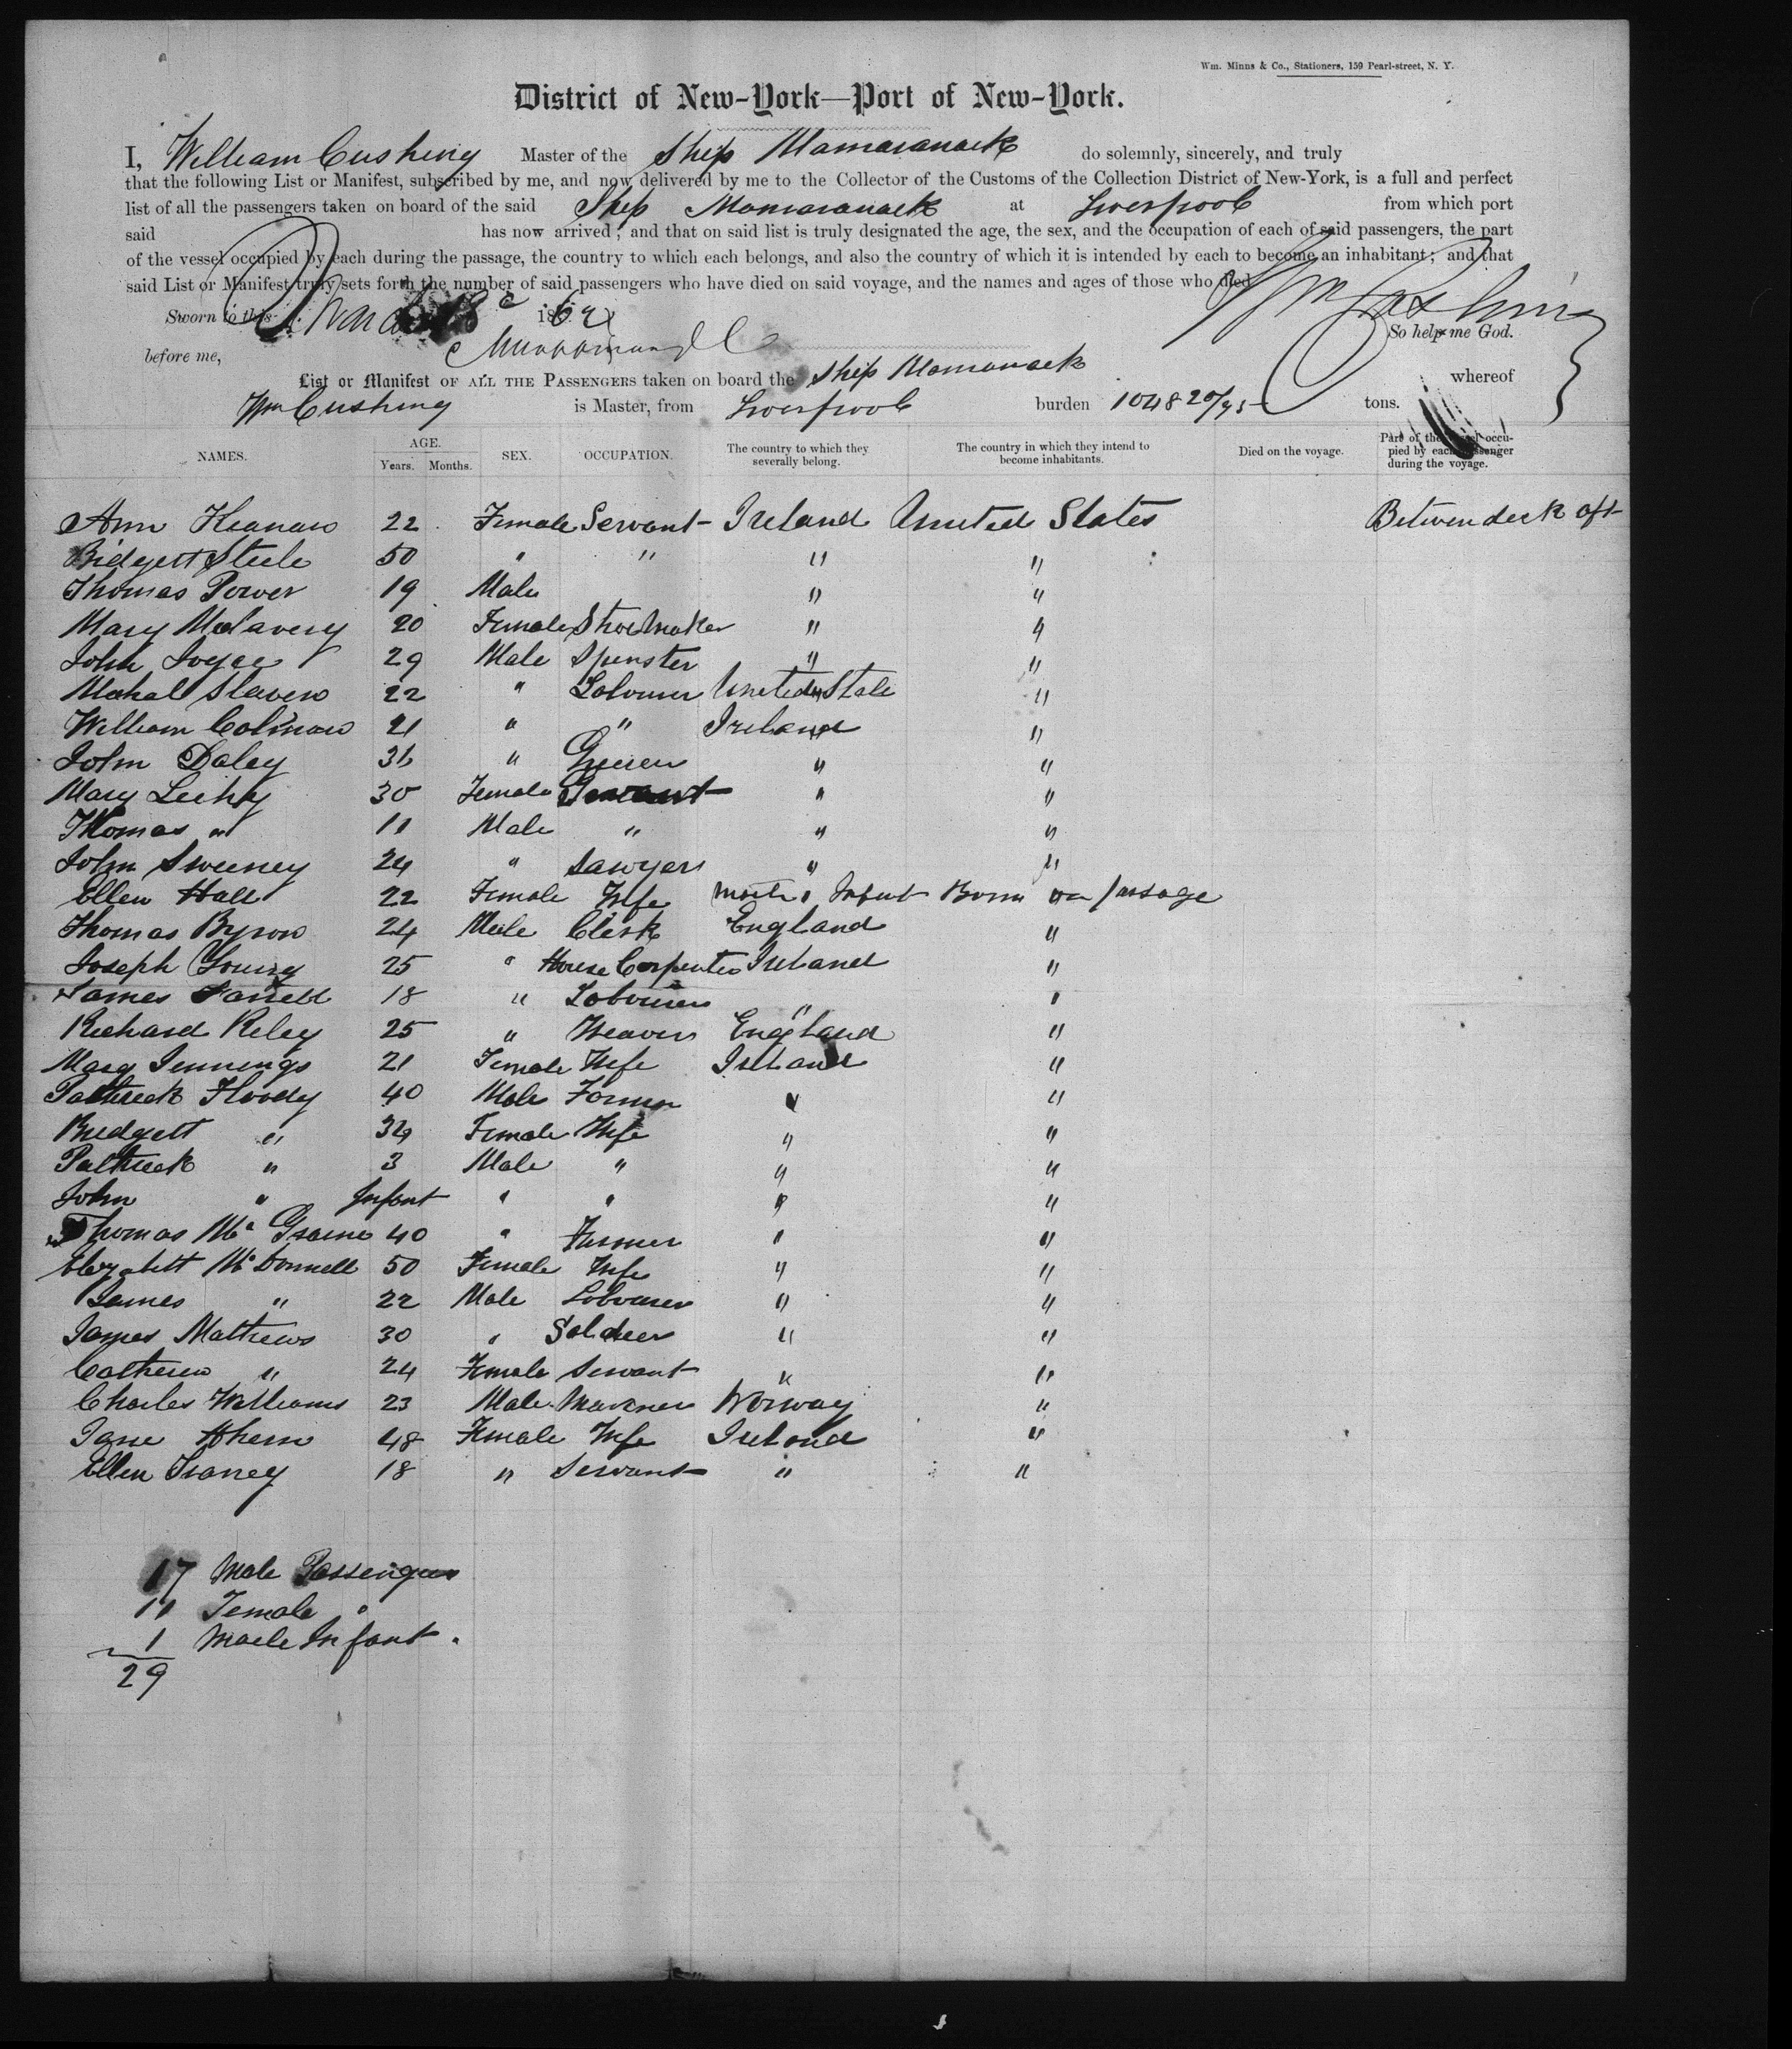 Wm. Minns & Co., Stationers, 159 Pearl-street, N. Y.
District of New-York—Port of New-York.
I, William Cushing Master of the Ship Mamaranack do solemnly, sincerely, and truly
that the following List or Manifest, subscribed by me, and now delivered by me to the Collector of the Customs of the Collection District of New-York, is a full and perfect
list of all the passengers taken on board of the said Ship Mamaranack at Liverpool from which port
said has now arrived; and that on said list is truly designated the age, the sex, and the occupation of each of said passengers, the part
of the vessel occupied by each during the passage, the country to which each belongs, and also the country of which it is intended by each to become an inhabitant; and that
said List or Manifest truly sets forth the number of said passengers who have died on said voyage, and the names and ages of those who died.
Wm Cushing
Sworn to this 18 62
So help me God.
before me,
List or Manifest OF ALL THE PASSENGERS taken on board the Ship Mamanack whereof
Wm Cushing is Master, from Liverpool burden 1048 20/95 tons.
NAMES. AGE. Years. Months. SEX. OCCUPATION. The country to which they severally belong. The country in which they intend to become inhabitants. Died on the voyage. Part of the vessel occupied by each passenger during the voyage.
Ann 22 Female Servant Ireland United States Between deck aft
Bidgett Steele 50 " " " "
Thomas Power 19 Male " "
Mary 20 Female Shoe Maker " "
John Joyce 29 Male Spinster " "
Slaven 22 " Labourer United State "
William Colman 21 " " Ireland "
John Daley 36 " " "
Mary Leihy 30 Female Servant " "
Thomas " 11 Male " " "
John Sweeney 24 " Sawyer " "
Ellen Hall 22 Female Wife Infant Born on passage
Thomas Byron 24 Male Clerk England "
Joseph Young 25 " House Carpenter Ireland "
James Farrell 18 " Labourer " "
Richard Riley 25 " Weaver England "
Mary Jennings 21 Female Wife Ireland "
Pathreck Floody 40 Male Farmer " "
Bridgett " 34 Female Wife " "
Pathreck " 3 Male " " "
John " Infant " " " "
Thomas Mc 40 " Farmer " "
Elizabett Mc Donnell 50 Female Wife " "
James " 22 Male Labourer " "
James Mathews 30 " Soldier " "
Catheren " 24 Female Servant " "
Charles Williams 23 Male Mariner Norway "
Jane Ahern 48 Female Wife Ireland "
Ellen 18 " Servant " "
17 Male Passengers
11 Female "
1 Male Infant.
29